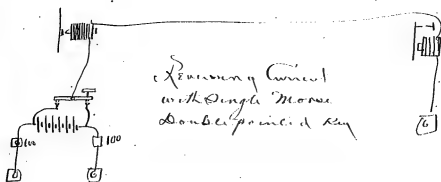 Reversing Current
with Single Morse
Double pointed Key
100
100
G
G